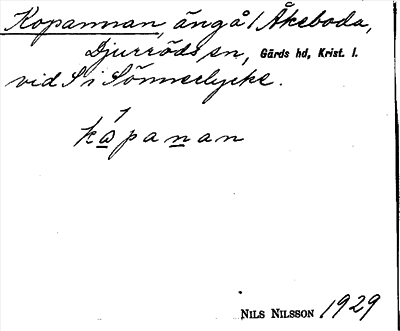 Kopannan, äng å 1 Åkeboda,
Djurröds sn, Gärds hd, Krist. l.
vid S i Sönnerlycke.
kåpanan
NILS NILSSON 1929